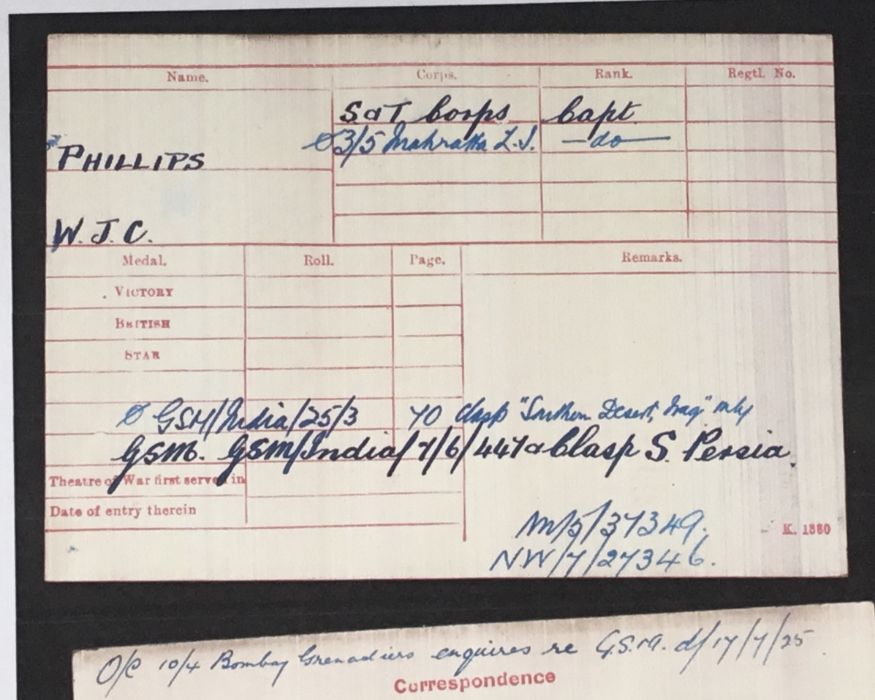 Name. Corps. Rank. Regtl. No.
S&T Corps Capt
Ø 3/5 Mahratta L.I. —do—
PHILLIPS
W. J. C.
Medal. Roll. Page. Remarks.
VICTORY
BRITISH
STAR
Ø GSM/India/25/3 70 Clasp "Southern Desert, Iraq" only
GSM. GSM/India/7/6/447a Clasp S. Persia.
Theatre of War first served in
Date of entry therein
M/5/37349.
K. 1380
NW/7/27346.
O/C 10/4 Bombay Grenadiers enquires re G.S.M. d/17/7/25
Correspondence